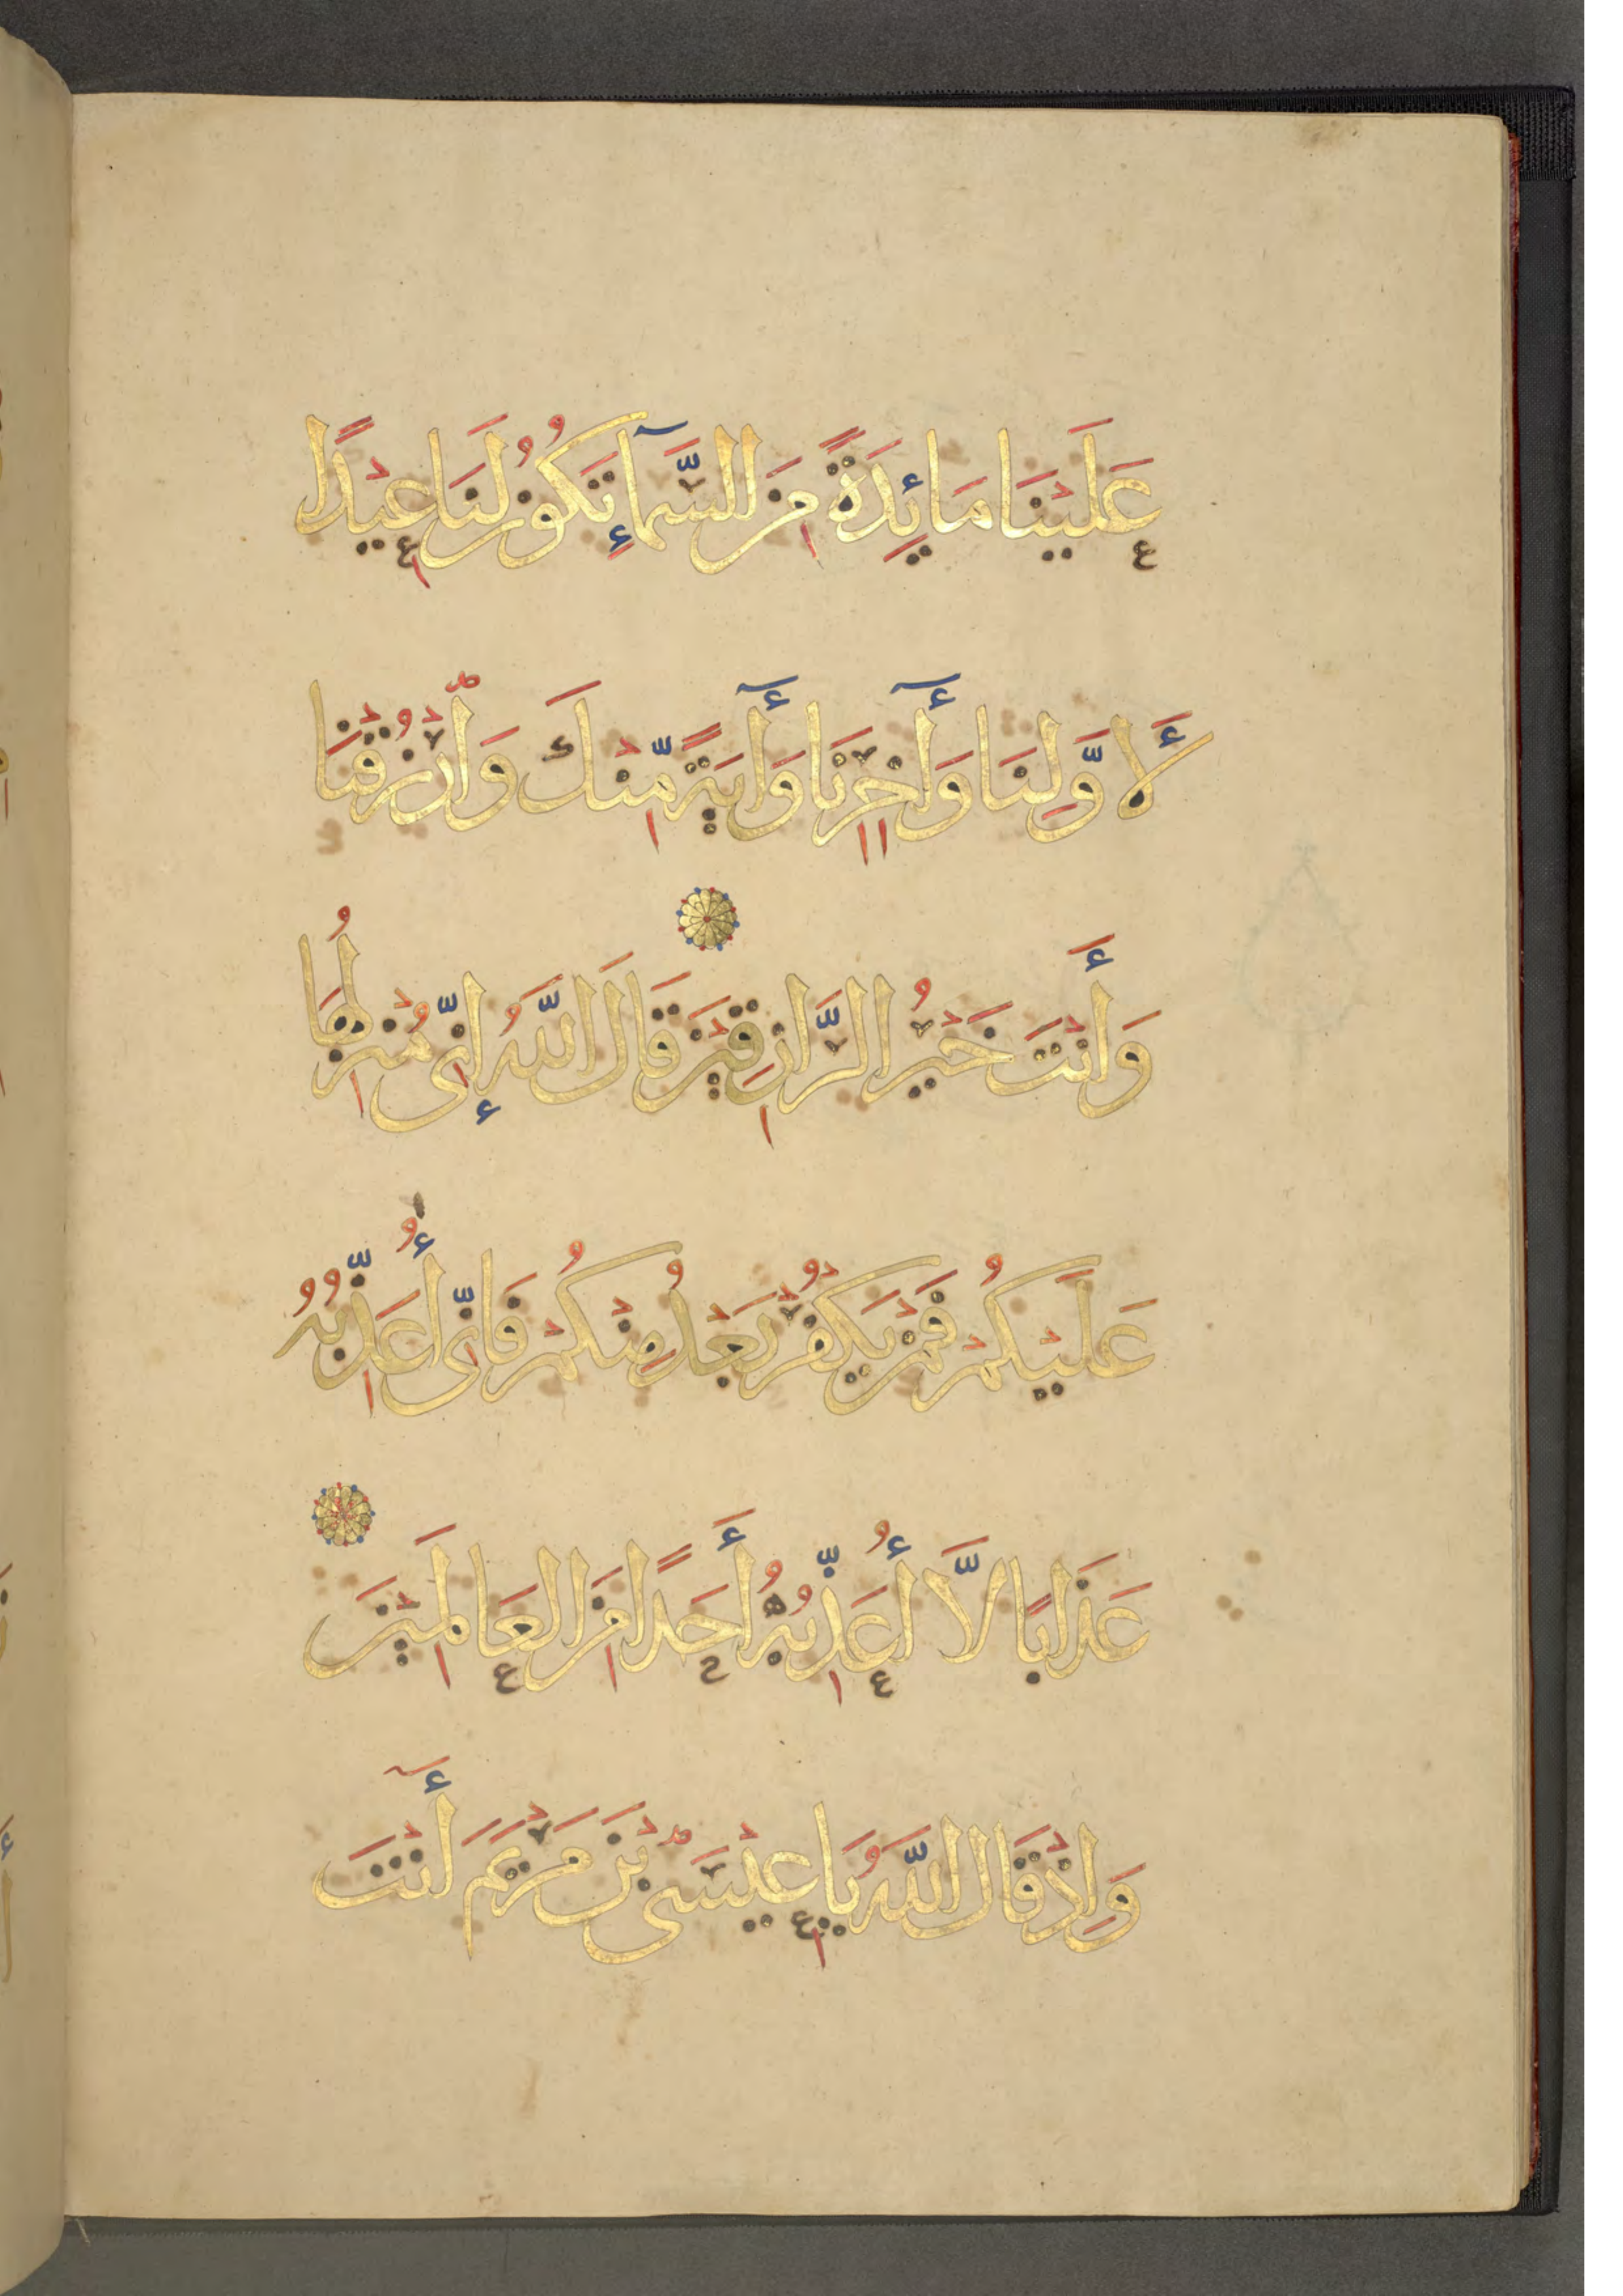 عَلَيْنَا مَائِدَةً مِنَ السَّمَآءِ تَكُونُ لَنَا عِيْدًا
لَأَوَّلِنَا وَأٓخِرِنَا وَأٓيَةً مِّنْكَ وَارْزُقْنَا
وَأَنْتَ خَيْرُ الرَّازِقِيْنَ قَالَ اللَّهُ إِنِّى مُنْزِلُهَا
عَلَيْكُمْ فَمَنْ يَكْفُرْ بَعْدُ مِنْكُمْ فَإِنِّى أُعَذِّبُهُ
عَذَابًا لَّا أُعَذِّبُهُ أَحَدًا مِنَ الْعَالَمِيْنَ
وَإِذْ قَالَ اللَّهُ يَا عِيْسَى بْنَ مَرْيَمَ أَٓنْتَ